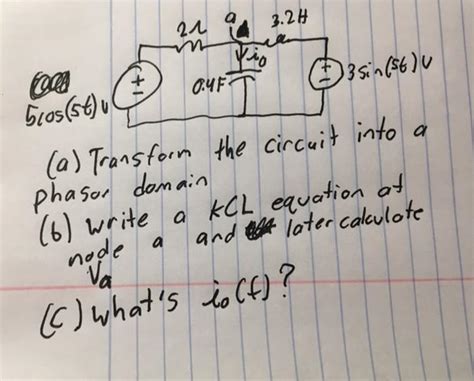 2Ω a 3.2H
io
+
-
0.4F
+
-
3sin(5t)v
5cos(5t)v
(a) Transform the circuit into a
phasor domain
(b) write a KCL equation at
node a and later calculate
Va
(c) what's io(t)?